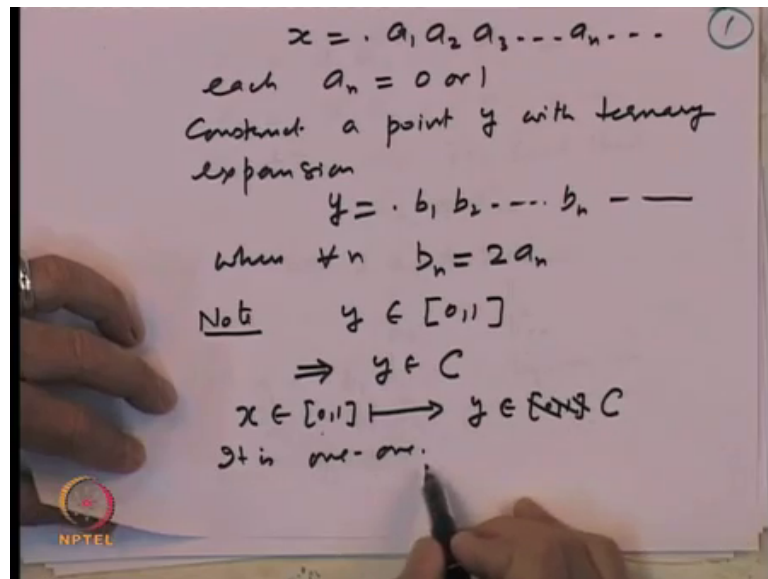 x = . a₁ a₂ a₃ --- aₙ ---
1
each aₙ = 0 or 1
Construct a point y with ternary
expansion
y = . b₁ b₂ ---- bₙ - —
when ∀ n bₙ = 2 aₙ
Note y ∈ [0,1]
⇒ y ∈ C
x ∈ [0,1] ⟼ y ∈ C
It is one-one.
NPTEL